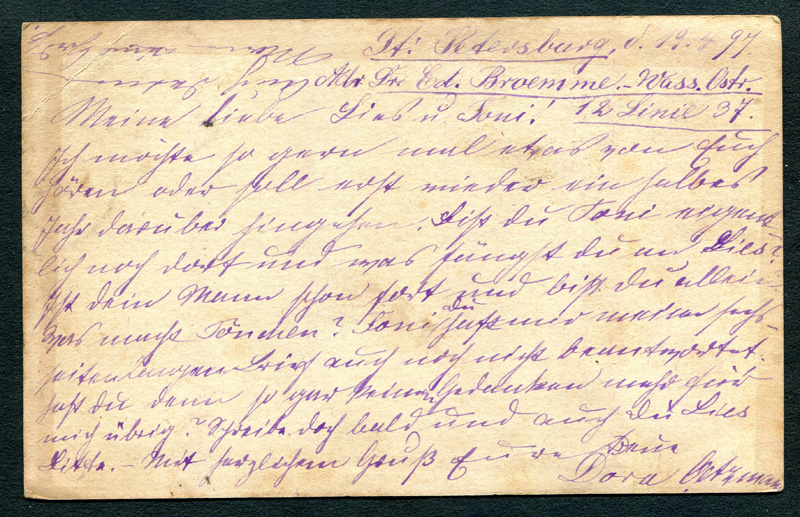 St. Petersburg, d. 19. 97.
Adr. Dr. Ed. Broemme.- Wass. Ostr.
Meine liebe Lies u. Toni! 12 Linie 37.
Ich möchte so gern mal etwas von Euch
hören oder soll erst wieder ein halbes
Jahr darüber hingehen. Bist du Toni eigent-
lich noch dort und was fängst du an Lies?
Ist dein Mann schon fort und bist du allein-
was macht Tönchen? Toni Du hast mir meinen sechs-
seitenlangen Brief auch noch nicht beantwortet.
hast du denn so gar keinen Gedanken mehr für
mich übrig? Schreibe doch bald und auch Du Lies
bitte. - Mit herzlichem Gruß Eure
Dora